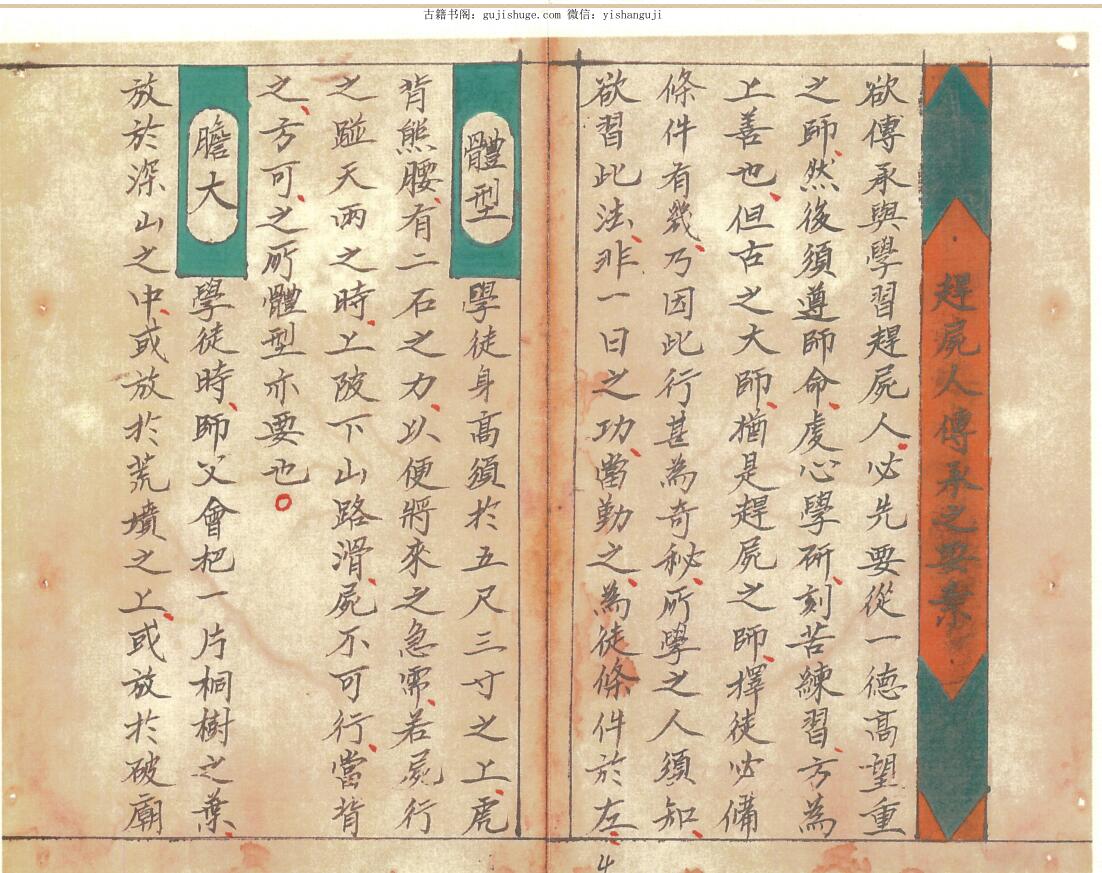 古籍书阁: gujishuge.com 微信: yishanguji
趕屍人傳承之要素
欲傳承與學習趕屍人、必先要從一德高望重
之師、然後須遵師命、虔心學研、刻苦練習、方為
上善也、但古之大師、猶是趕屍之師、擇徒必備
條件有幾、乃因此行甚為奇秘、所學之人須知、
欲習此法、非一日之功、當勤之、為徒條件於左、
4
體型
學徒身高須於五尺三寸之上、虎
背熊腰、有二石之力、以便將來之急需、若屍行
之踫天雨之時、上陂下山路滑、屍不可行、當背
之、方可、之所體型亦要也。
膽大
學徒時、師父會把一片桐樹之葉、
放於深山之中、或放於荒墳之上、或放於破廟